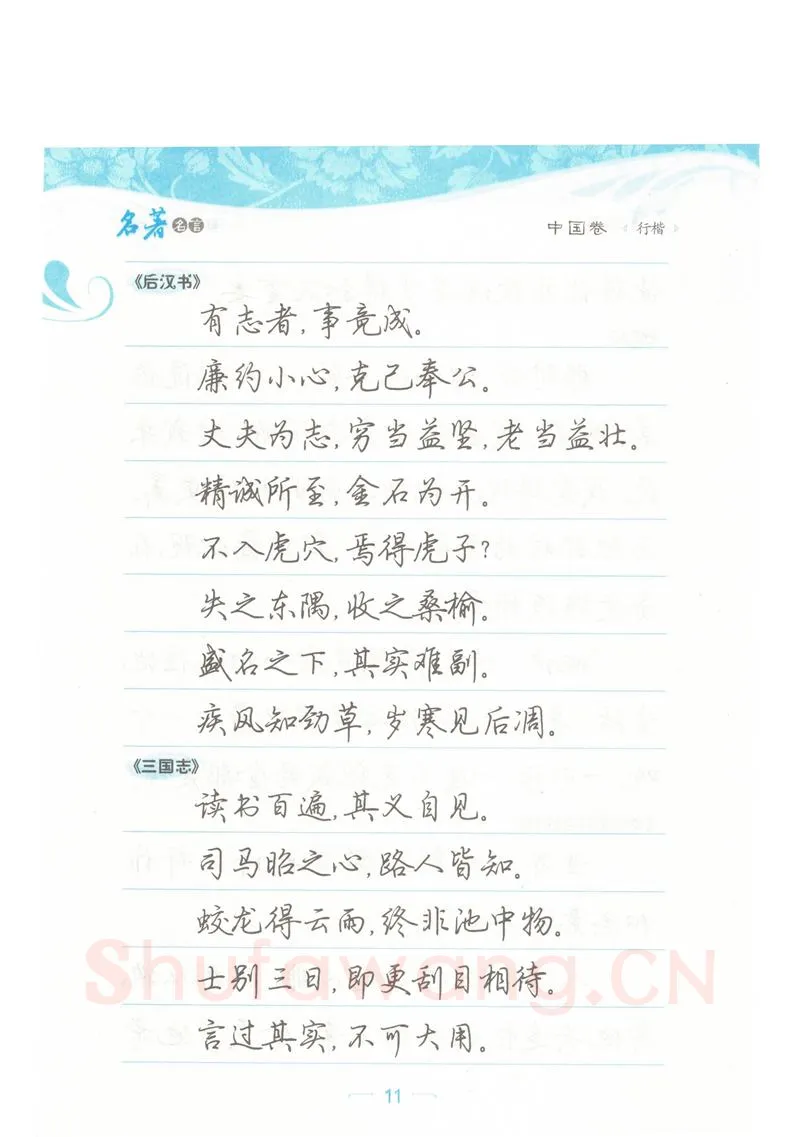 名著名言
中国卷 行楷
《后汉书》
有志者,事竟成。
廉约小心,克己奉公。
丈夫为志,穷当益坚,老当益壮。
精诚所至,金石为开。
不入虎穴,焉得虎子?
失之东隅,收之桑榆。
盛名之下,其实难副。
疾风知劲草,岁寒见后凋。
《三国志》
读书百遍,其义自见。
司马昭之心,路人皆知。
蛟龙得云雨,终非池中物。
士别三日,即更刮目相待。
言过其实,不可大用。
Shufawang.CN
11